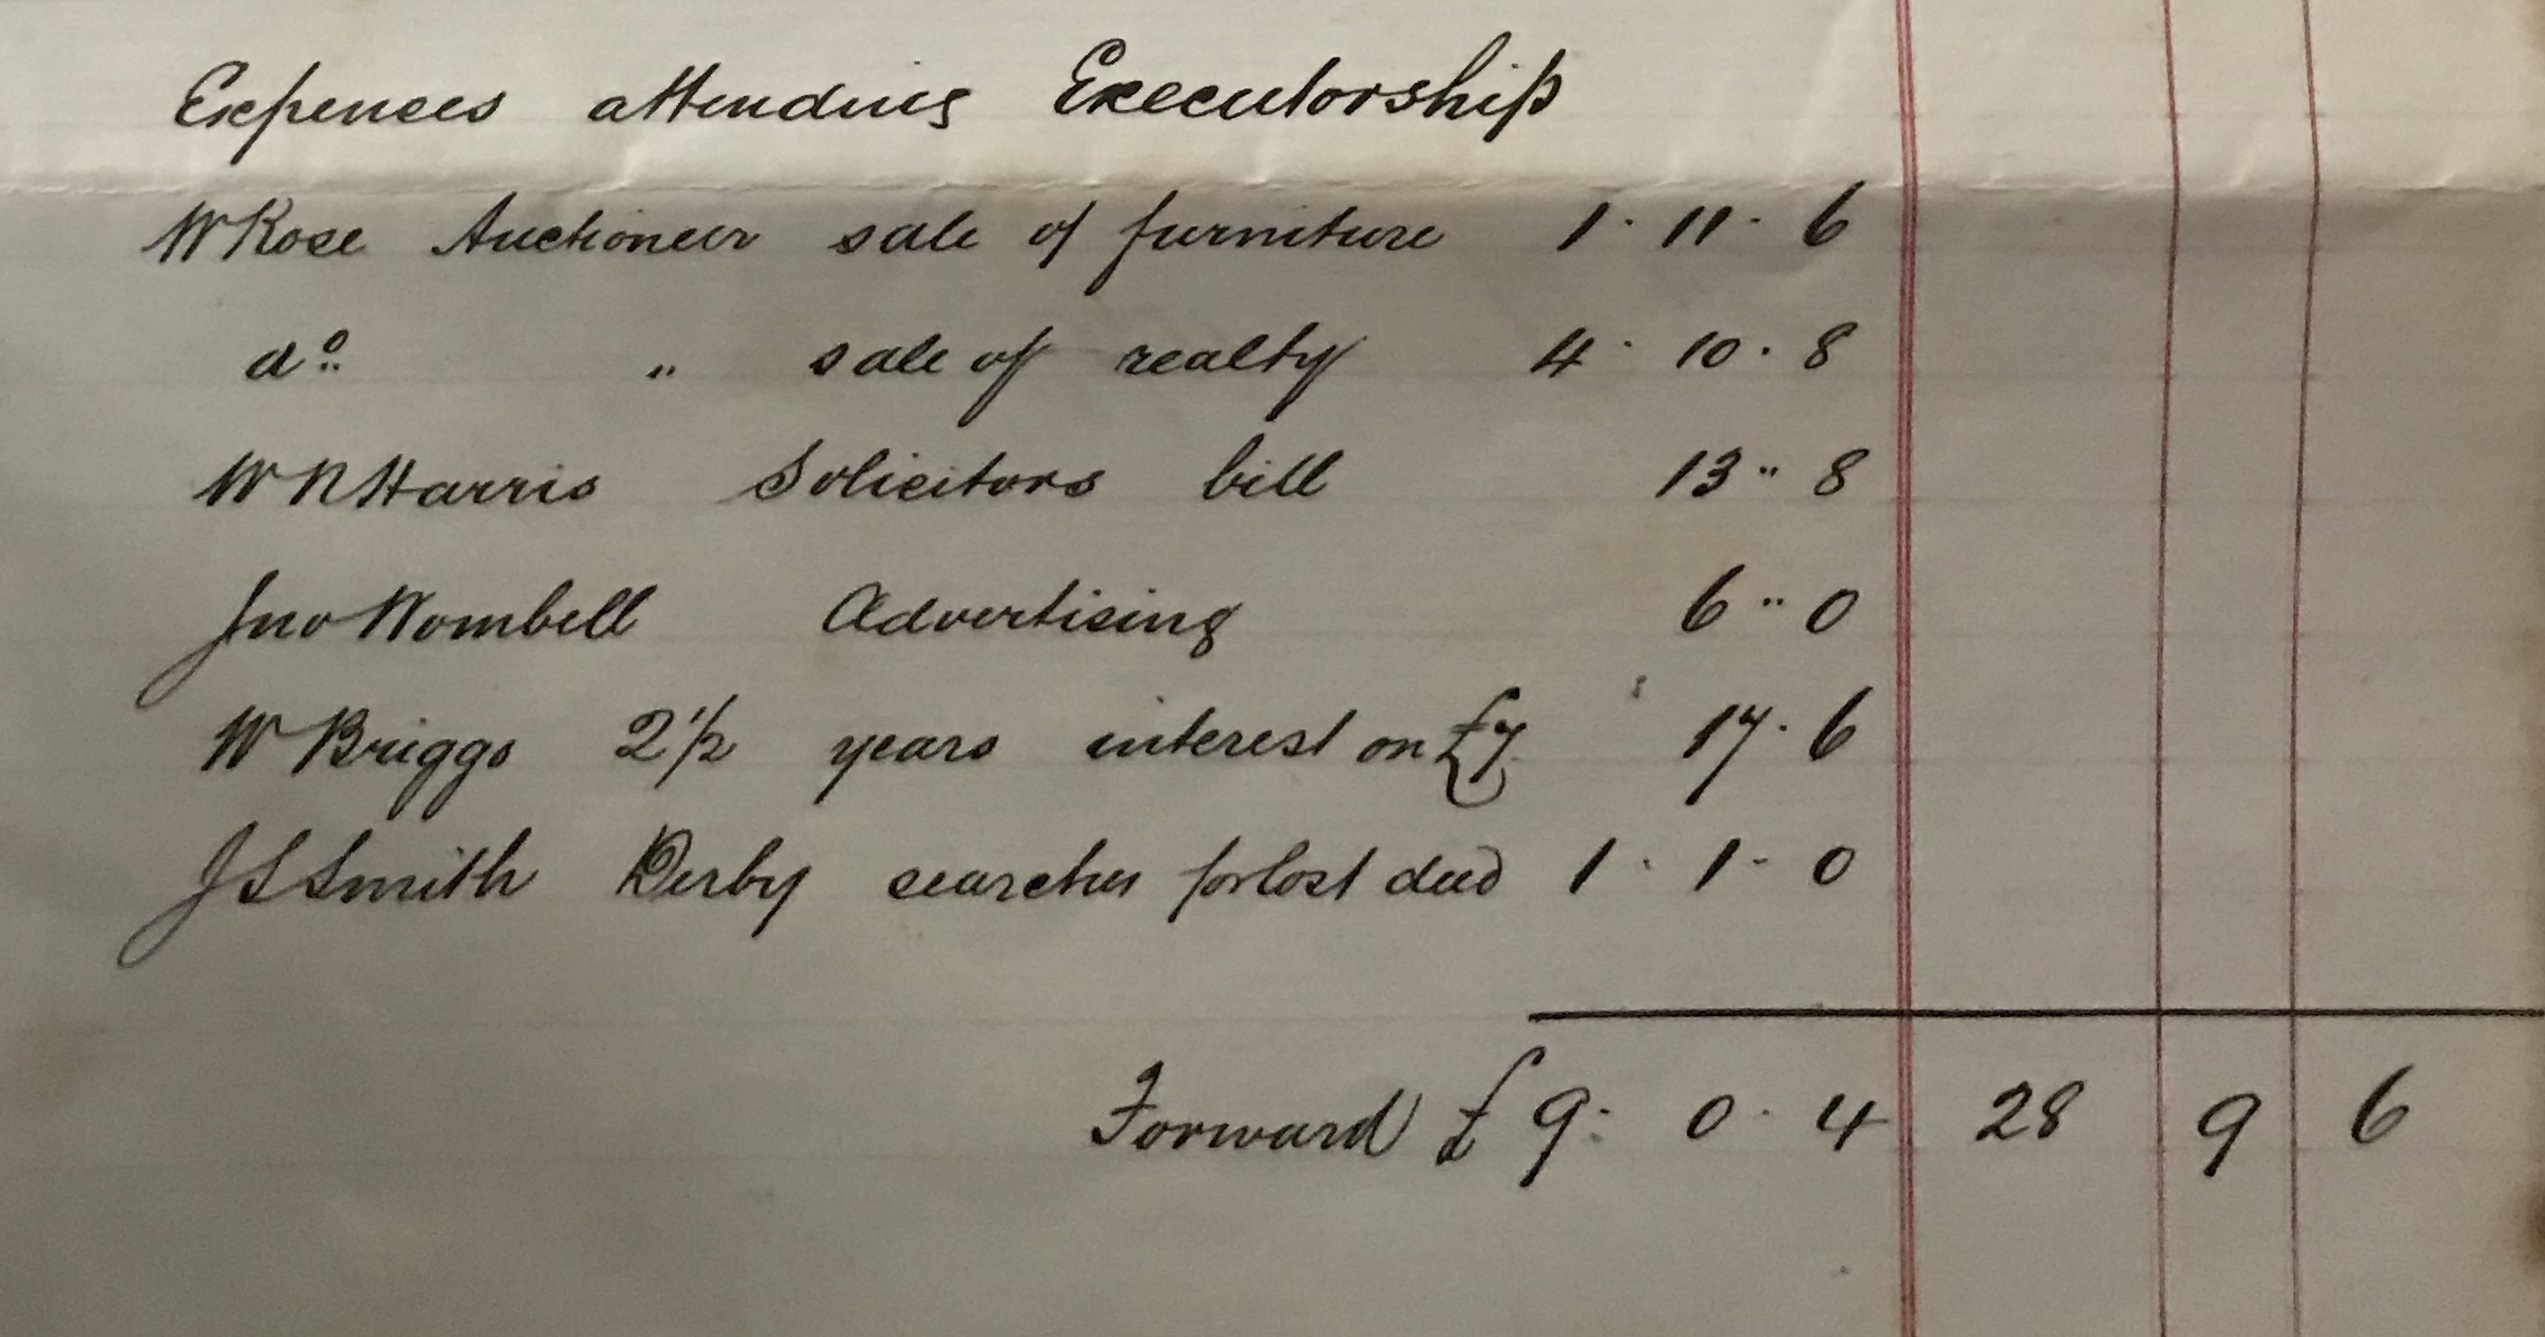 Expenses attending Executorship
W Rose Auctioneer sale of furniture 1 · 11 · 6
do " sale of realty 4 · 10 · 8
W N Harris Solicitors bill 13 " 8
Jno Wombell Advertising 6 " 0
W Briggs 2 1/2 years interest on £7 17 · 6
J S Smith Derby searches for lost deed 1 · 1 · 0
Forward £ 9 · 0 · 4 28 9 6